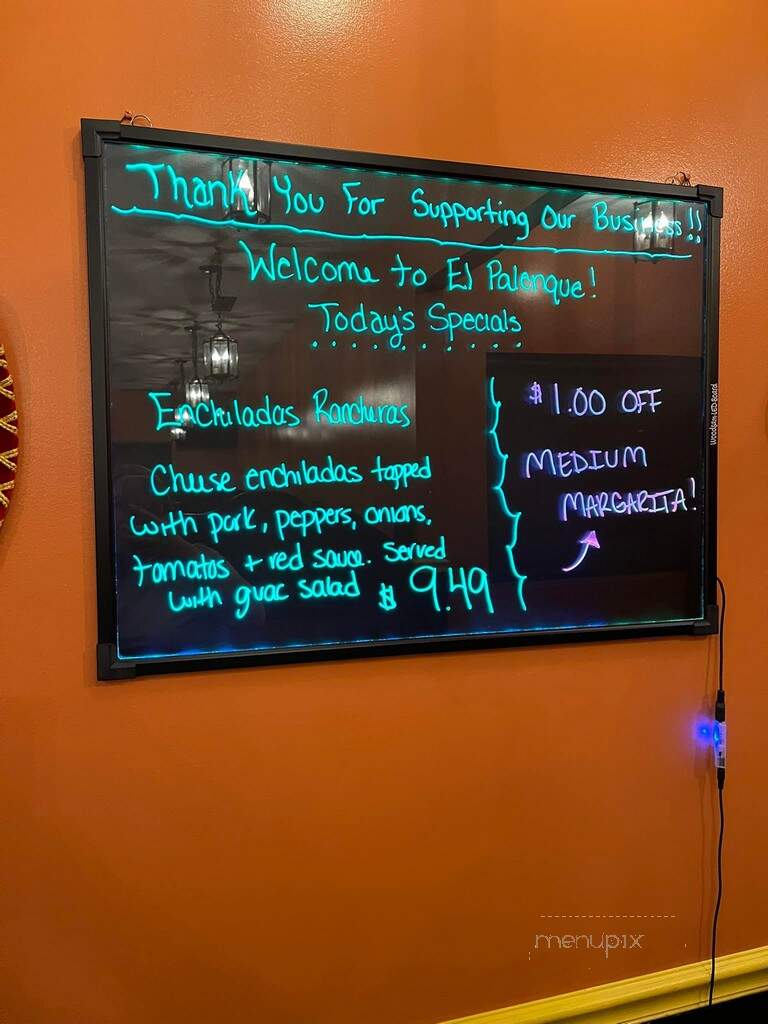 Thank You For Supporting Our Business!!
Welcome to El Palenque!
Today's Specials
Enchiladas Rancheras
Cheese enchiladas topped
with pork, peppers, onions,
tomatos + red sauce. Served
with guac salad $9.49
$1.00 OFF
MEDIUM
MARGARITA!
Woodsam LED Board
menupix